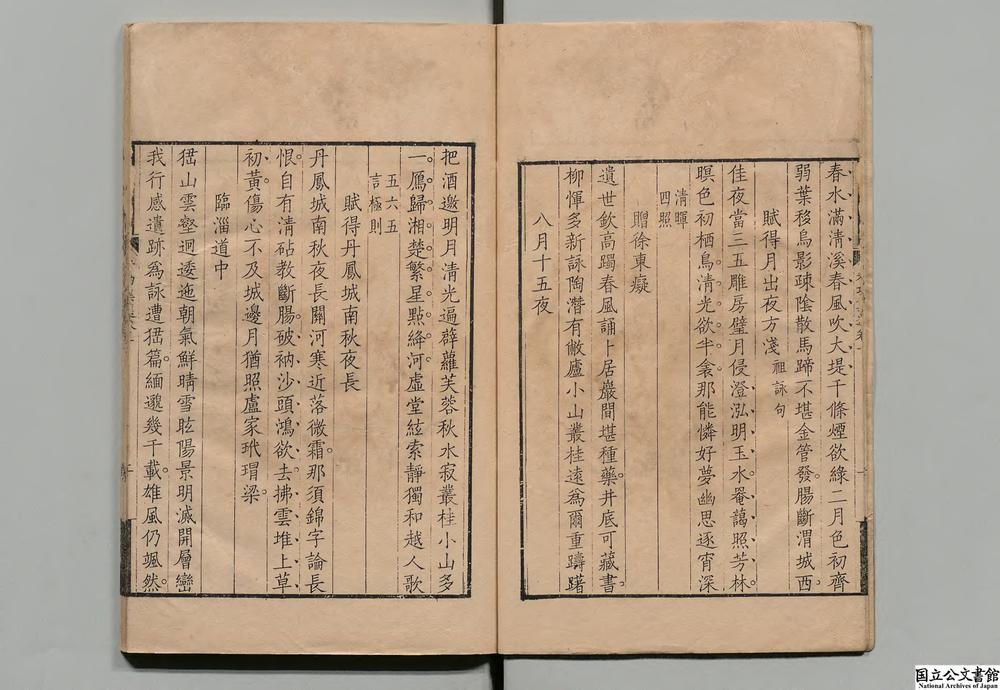 春水滿清溪春風吹大堤千條煙欲綠二月色初齊
弱葉移烏影疎陰散馬蹄不堪金管發腸斷渭城西
賦得月出夜方淺祖詠句
佳夜當三五雕房璧月侵澄泓明玉水菴藹照芳林
暝色初栖鳥清光欲半衾那能憐好夢幽思逐宵深
清暉
四照
贈徐東癡
遺世欽高躅春風誦卜居巖間堪種藥井底可藏書
柳惲多新詠陶潛有敝廬小山叢桂遠爲爾重躊躇
八月十五夜
把酒邀明月清光遍薜蘿芙蓉秋水寂叢桂小山多
一鴈歸湘楚繁星點絳河虛堂絃索靜獨和越人歌
五六五
言極則
賦得丹鳳城南秋夜長
丹鳳城南秋夜長關河寒近落微霜那須錦字論長
恨自有清砧教斷腸破衲沙頭鴻欲去拂雲堆上草
初黃傷心不及城邊月猶照盧家玳瑁梁
臨淄道中
峱山雲壑迥逶迤朝氣鮮晴雪眩陽景明滅開層巒
我行感遺跡爲詠遭峱篇緬邈幾千載雄風仍颯然
国立公文書館
National Archives of Japan